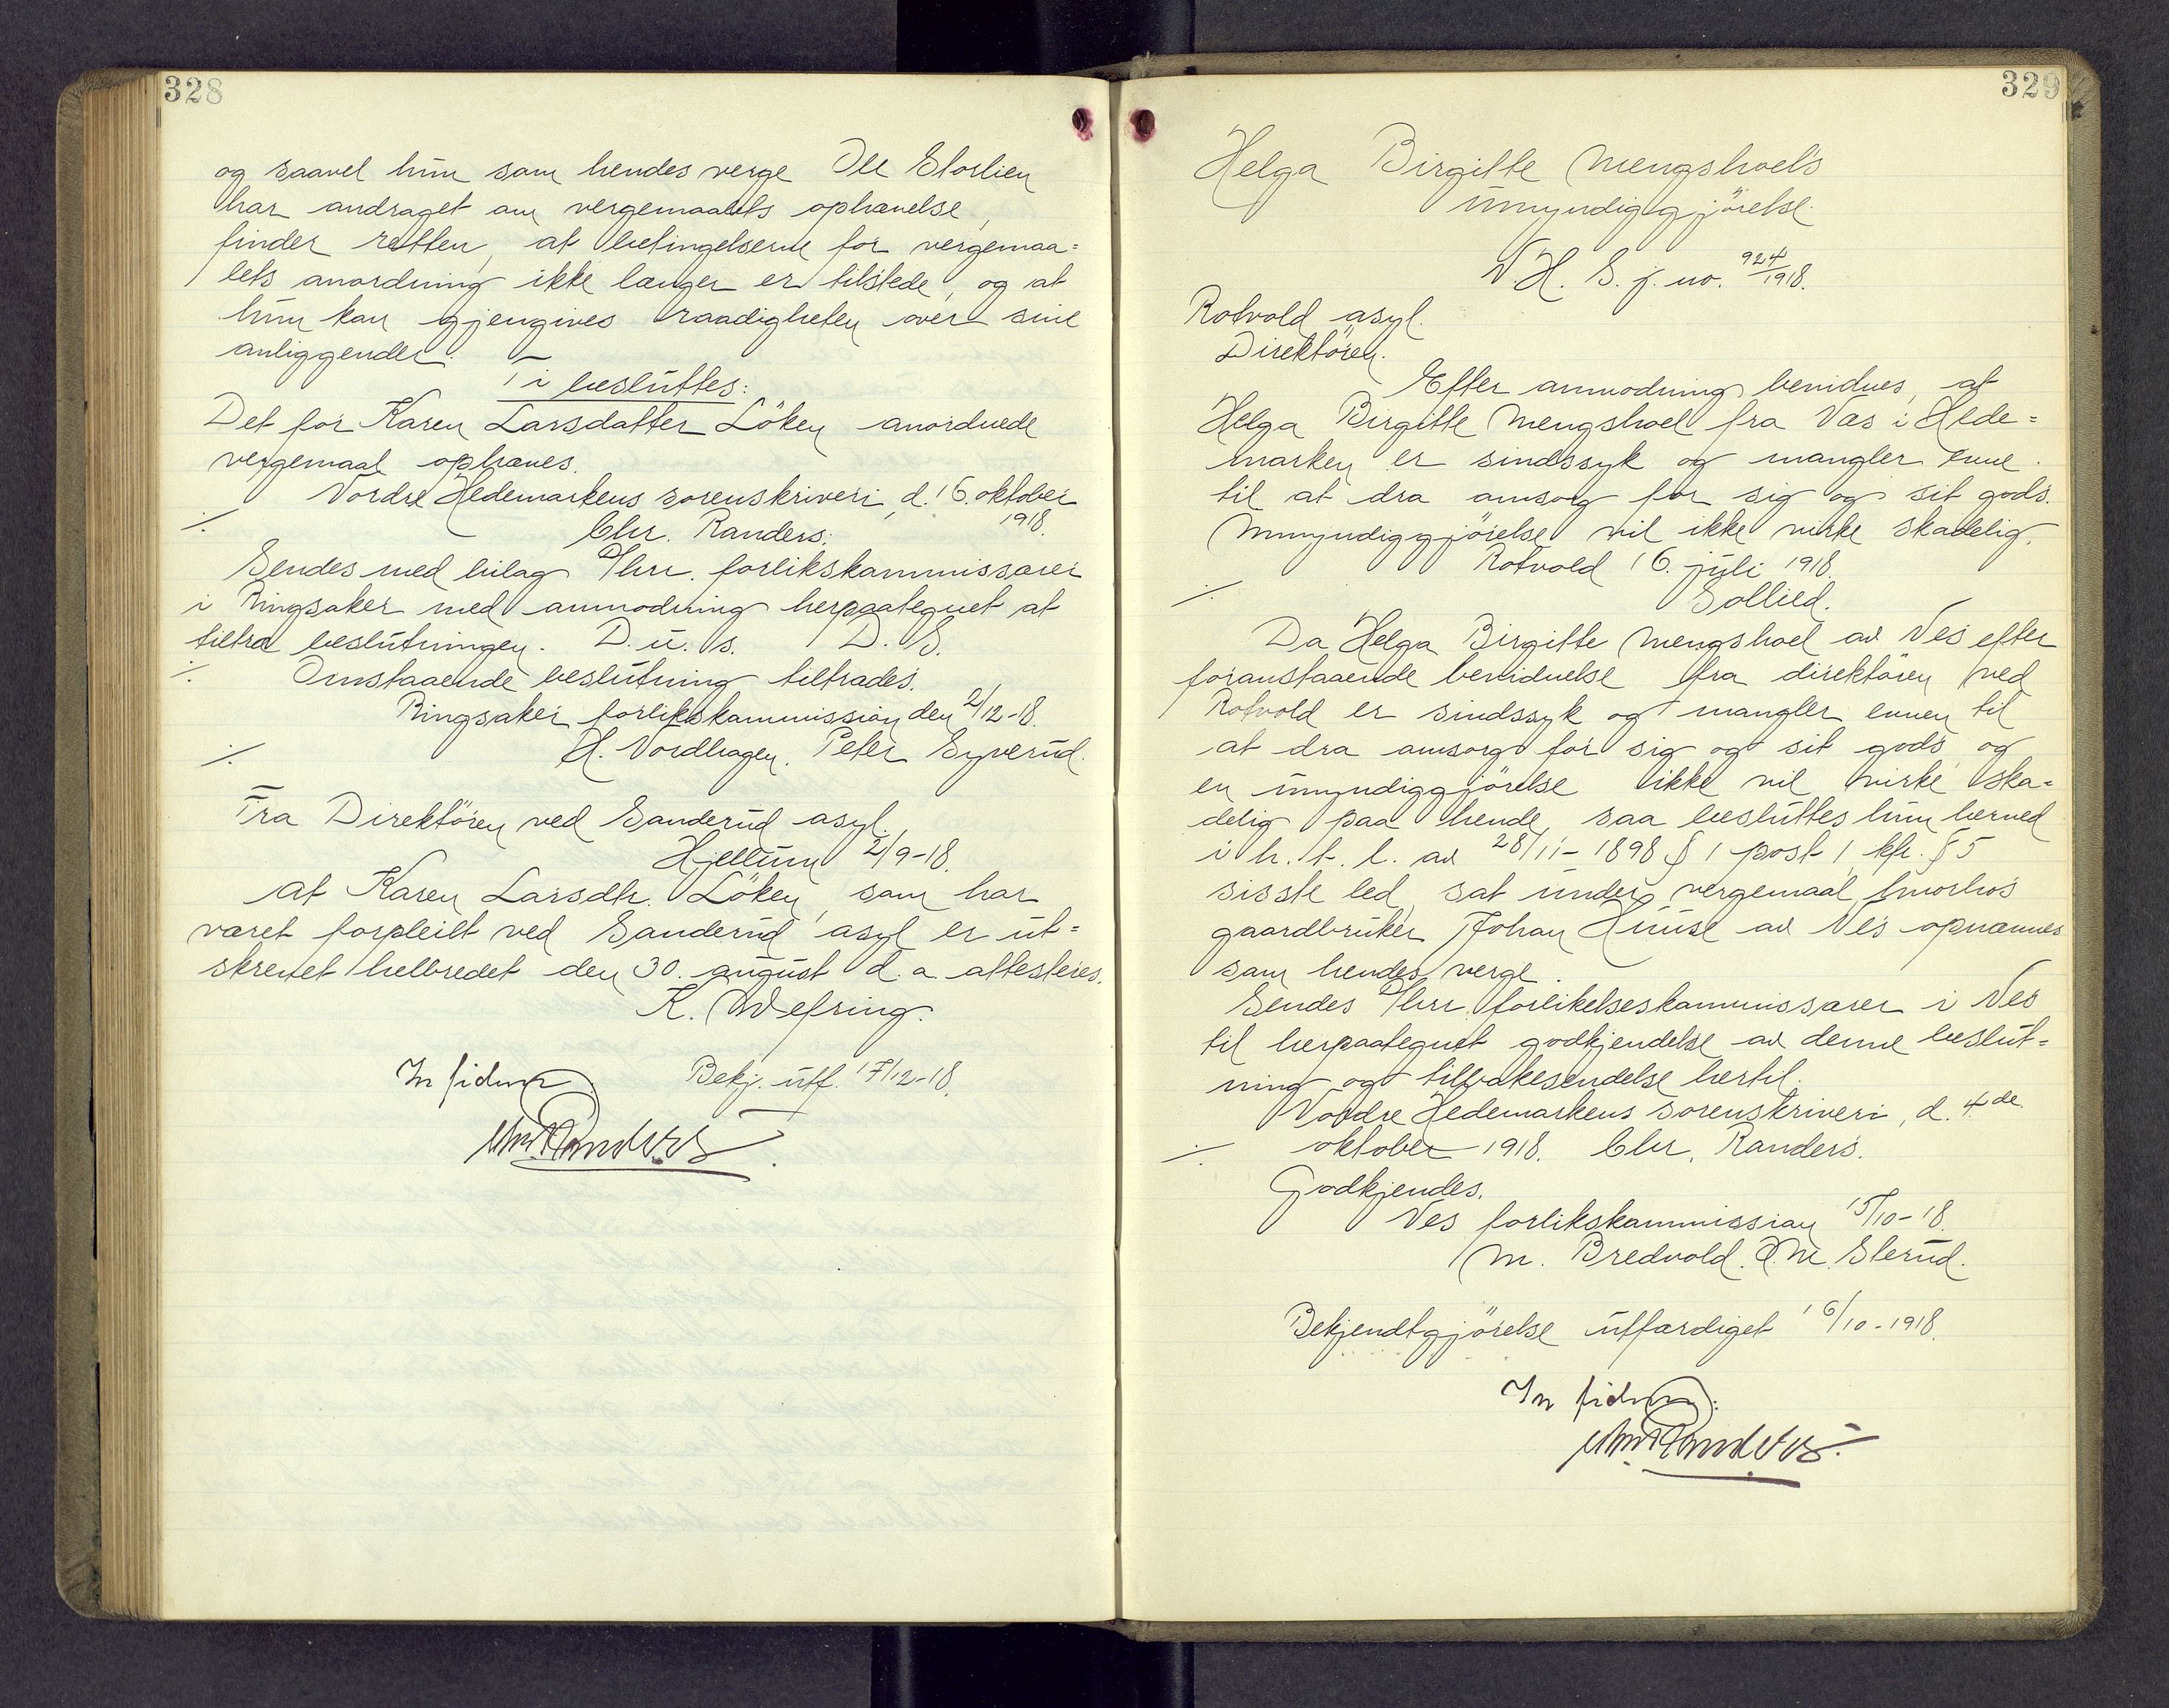 328
og saavel hun som hendes verge Ole Storlien
har andraget om vergemaalets ophævelse,
finder retten, at betingelserne for vergemaa=
lets anordning ikke længer er tilstede, og at
hun kan gjengives raadigheten over sine
anliggender.
Ti besluttes:
Det for Karen Larsdatter Löken anordnede
vergemaal ophæves.
Nordre Hedemarkens sorenskriveri, d. 16. oktober
1918.
Chr. Randers.
./.
Sendes med bilag Hrr. forlikskommissærer
i Ringsaker med anmodning herpaategnet at
tiltræ beslutningen. D. u. s. D. S.
./. Omstaaende beslutning tiltrædes.
Ringsaker forlikskommission den 2/12-18.
H. Nordhagen. Peter Syverud.
./.
Fra Direktören ved Sanderud asyl.
Hjellum 2/9-18.
At Karen Larsdtr. Löken, som har
været forpleiet ved Sanderud asyl er ut=
skrevet helbredet den 30. august d. a. attesteres.
K. Wefring.
In fidem Bekj. utf. 17/12-18.
Chr. Randers.
329
Helga Birgitte Mengshoel's
umyndiggjörelse.
N. H. S. j. no. 924/1918.
Rotvold asyl.
Direktören.
Efter anmodning bevidnes, at
Helga Birgitte Mengshoel fra Næs i Hede=
marken er sindssyk og mangler evne
til at dra omsorg for sig og sit gods.
Umyndiggjörelse vil ikke virke skadelig.
Rotvold 16. juli 1918.
./. Sollied.
Da Helga Birgitte Mengshoel av Nes efter
foranstaaende bevidnelse fra direktören ved
Rotvold er sindssyk og mangler evnen til
at dra omsorg for sig og sit gods og
en umyndiggjörelse ikke vil virke ska=
delig paa hende, saa besluttes hun herved
i h. t. l. av 28/11-1898 § 1 post 1 kfr. § 5
sisste led, sat under vergemaal, hvorhos
gaardbruker Johan Huuse av Nes opnævnes
som hendes verge.
Sendes Hrr. forlikelseskommissærer i Nes
til herpaategnet godkjendelse av denne beslut=
ning og tilbakesendelse hertil.
Nordre Hedemarkens sorenskriveri, d. 4de
./. oktober 1918. Chr. Randers.
Godkjendes.
Nes forlikskommission 15/10-18.
M. Bredvold. O. M. Sterud.
Bekjendtgjörelse utfærdiget 16/10-1918.
In fidem:
Chr. Randers.